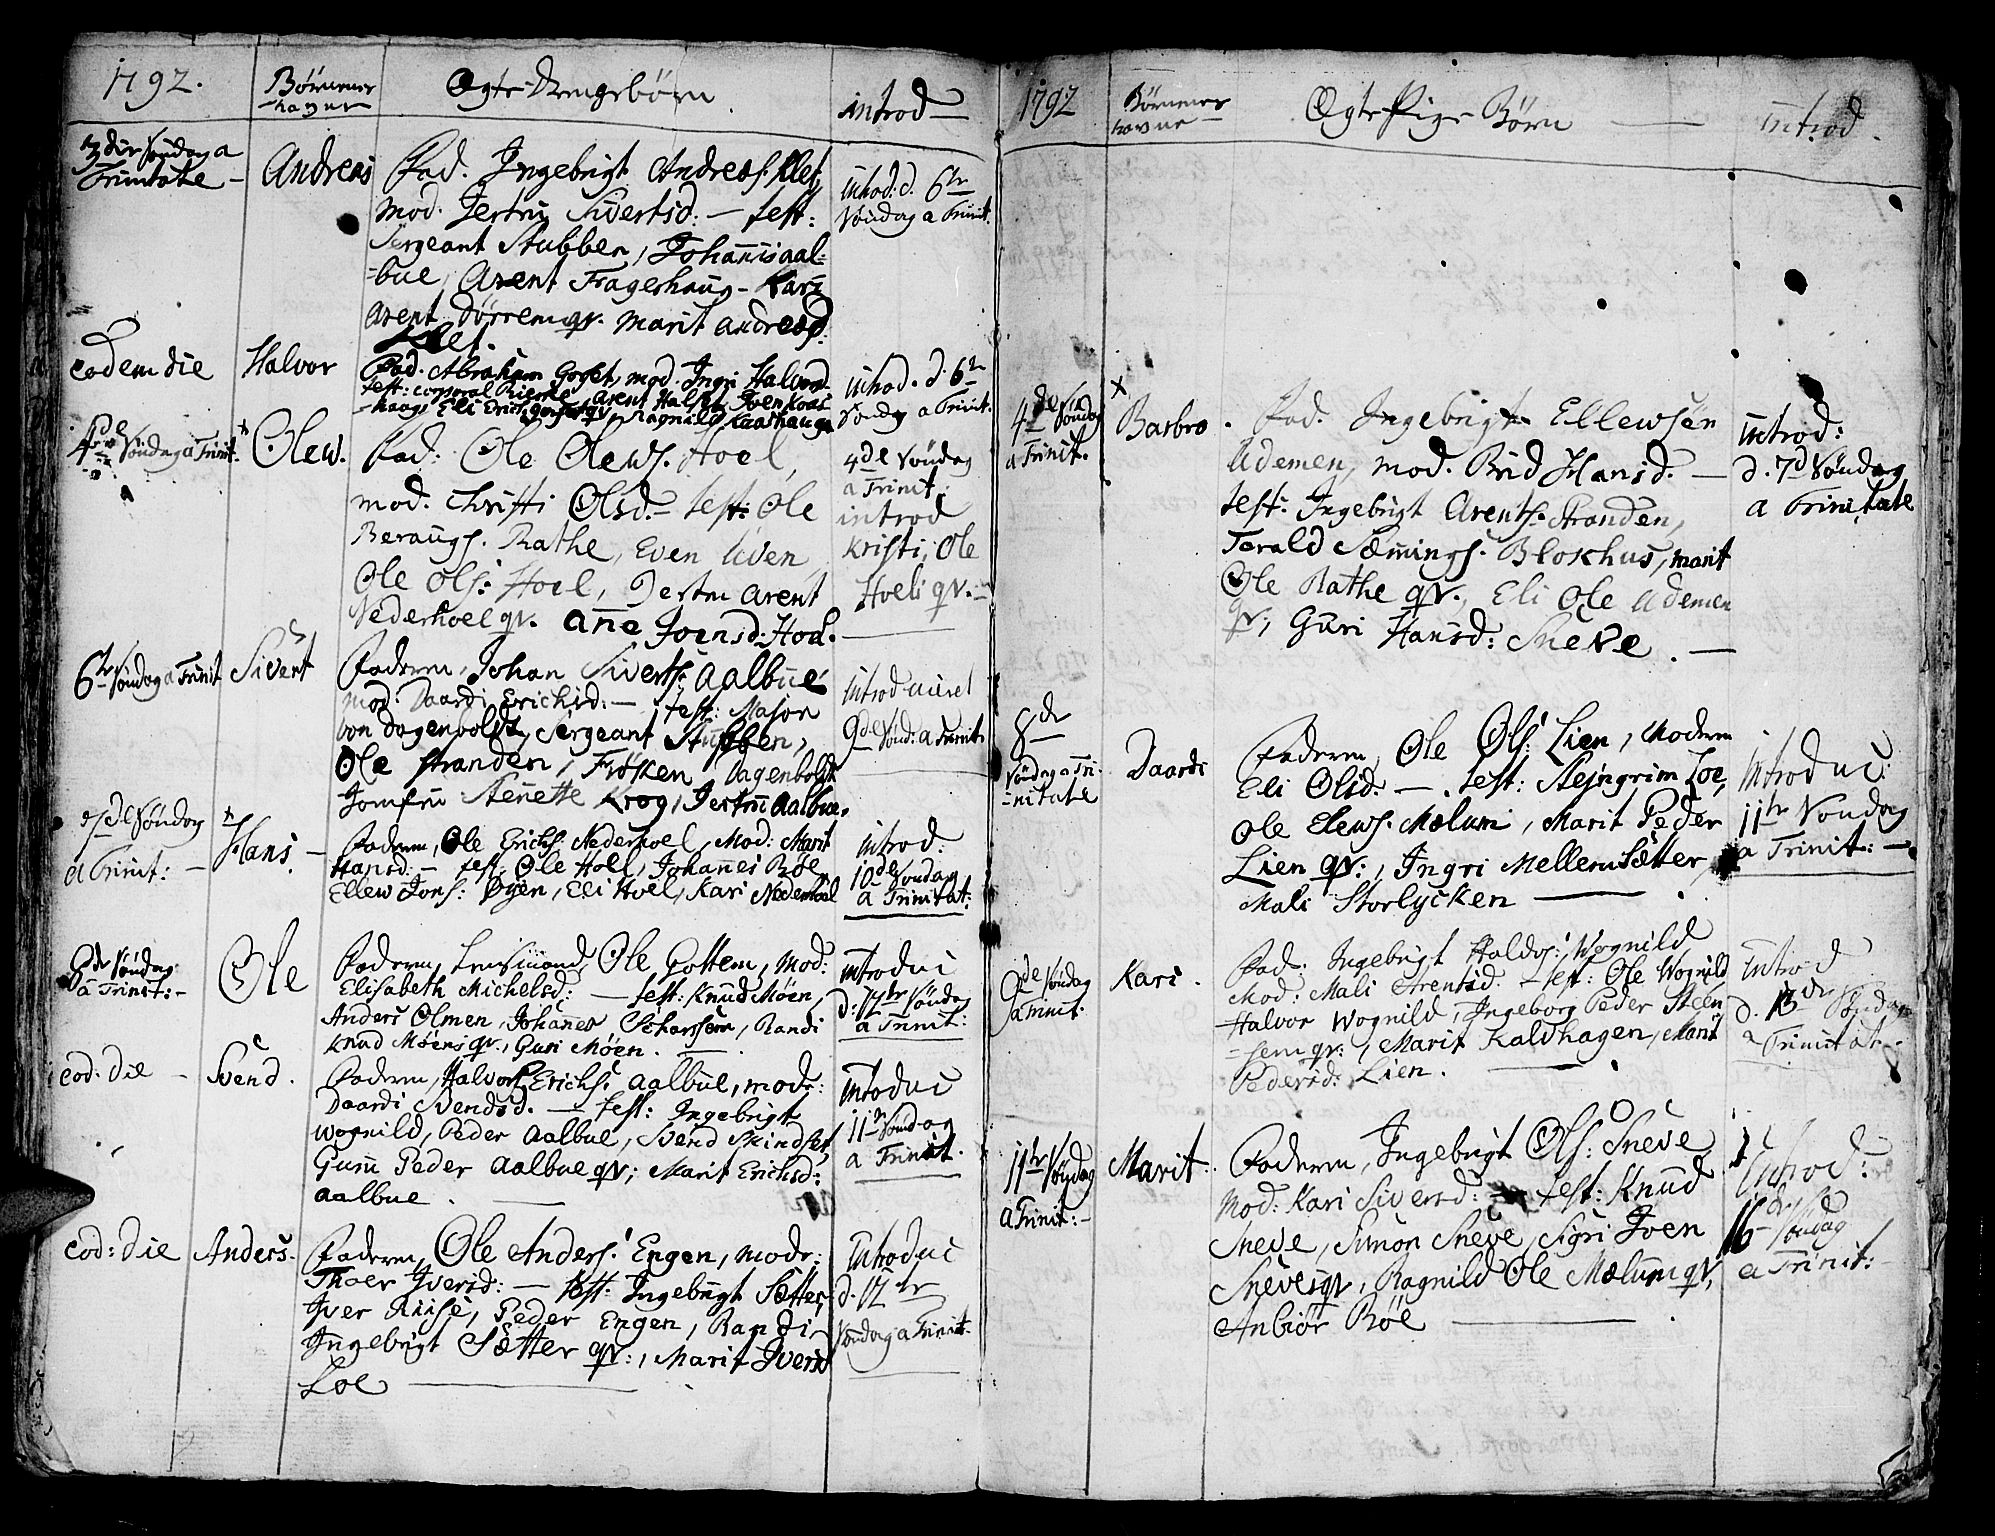 1792.
Børnenes
havne
Ægte Drengebørn.
introd
3die Søndag a
Trinitate
Andreas
Fad. Ingebrigt Andreas. Klet,
mod. Jertru Sivertsd: — test:
Sergeant Stubben, Johannis aal:
=bue, Arent Fragerhaug - Kari
Arent Dørrem qv. Marit Andreæd
Klet.
introd: d. 6te
Søndag a Trinit.
eodem die
Halvor
Fad. Abraham Goget, mod. Ingri Halvord.
test: corporal Rierke, Arent Halset, Iven Kaas
=haag, Eli Erich qv. Ragnild Kaashaug
introd. d. 6te
Søndag a Trinit.
4de Søndag a Trinit.
Olew.
Fad: Ole Olews. Hoel,
mod. Christi Olsd. - test: Ole
Beraugs. Rathe, Even Uven
Ole Ols: Hoel, Jertru Arent
Nederhoel qv. Anne Joensd: Hoel.
4de Søndag
a Trinit.
introd
Kristi, Ole
Hoeli qv. —
6te Søndag a Trinit
Sivert
Faderen, Johan Siverts: Aalbue
mod: Daardi Erichsd: — test: Major
von Dagenboldt, Sergeant Stubben,
Ole Stranden, Frøken Dagenboldt
Jomfru Stenette Krog, Jertru Aalbue.
introduceret
9de Sønd: a Trinit.
7de Søndag
a Trinit: —
Hans —
Faderen, Ole Erichs. Nederhoel, Mod: Marit
Hansd: — test: Ole Hoel, Johannes Bøe,
Ellew Jons: Øyen, Eli Hoel, Kari Nederhoel
introd:
10de Søndag
a Trinitat:
8de Søndag
a Trinit: -
Ole
Faderen, Lensmand Ole Gottem, mod:
Elisabeth Michelsd: — test: Knud Møen,
Anders Olmen, Johannes Scharssem, Randi
Knud Møens qv., Guri Møen. —
introduc
d: 12te Søndag
a Trinit:
eod: die —
Svend.
Faderen, Halvor Erichs: Aalbue, mod:
Daardi Svendsd. — test: Ingebrigt
Wognild, Peder Aalbue, Svend Skindset,
Guru Peder Aalbue qv; Marit Erichsd:
Aalbue . —
introduc
11te Søndag
a Trinit.
eod: die
Anders.
Faderen, Ole Anders: Engen, modr:
Thoer Iversd: — test: Ingebrigt Sætter,
Iver Riise, Peder Engen, Randi
Ingebrigt Sætter qv:, Marit Iversd
Loe —
Introduc
d. 12te
Søndag a Trinit.
1792
Børnenes
havne
Ægte Pige Børn —
introd.
4de Søndag
a Trinit.
Barbro.
Fad. Ingebrigt Ellewsen
Ademen, mod. Brid Hansd. —
test: Ingebrigt Arents. Stranden,
Torald Sæmings. Blokhus, Marit
Ole Rathe qv., Eli Ole Ademen
qv, Guri Hansd: Sneve . —
introd:
d. 7d Søndag
a Trinitate
8de
Søndag a Tri-
=nitate
Daardi
Faderen, Ole Ols: Lien, Moderen
Eli Olsd. — . test: Stejngrim Loe,
Ole Elews. Mælum, Marit Peder
Lien qv:, Ingri Mellemsætter,
Mali Storlycken —
Introduc:
11te Søndag
a Trinit: —
9de Søndag
a Trinit.
Kari.
Fad: Ingebrigt Haldos: Wognild
Mod: Mali Arentsd. - test: Ole Wognild,
Halvor Wognild, Ingeborg Peder Steen
=sem qv:, Marit Kaldhagen, Marit
Pedersd: Lien. —
introd
d. 13de Søndag
a Trinitat.
11te Søndag
a Trinit: -
Marit.
Faderen, Ingebrigt Ols: Sneve
Mod: Kari Siversd: — test: Knud
Sneve, Simon Sneve, Sigri Iven
Sneves qv, Ragnild Ole Mælum qv,
Anbiør Bøe —
Introd:
16de Søndag
a Trinit: -